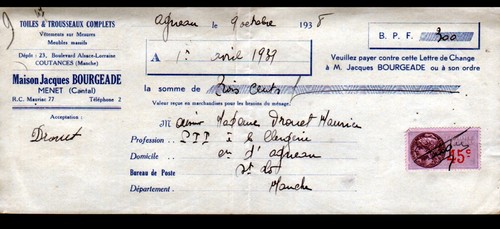 TOILES & TROUSSEAUX COMPLETS
Vêtements sur Mesures
Meubles massifs
Dépôt : 23, Boulevard Alsace-Lorraine
COUTANCES (Manche)
Maison Jacques BOURGEADE
MENET (Cantal)
R.C. Mauriac 77 Téléphone 2
Acceptation :
Drouet
Agneau le 9 octobre 1938
B. P. F. 300
A 1er avril 1939
Veuillez payer contre cette Lettre de Change
à M. Jacques BOURGEADE ou à son ordre
la somme de trois cents
Valeur reçue en marchandises pour les besoins du ménage.
M Madame Drouet Maurice
Profession
Domicile d'agneau
Bureau de Poste St Lo
Département. Manche
45c